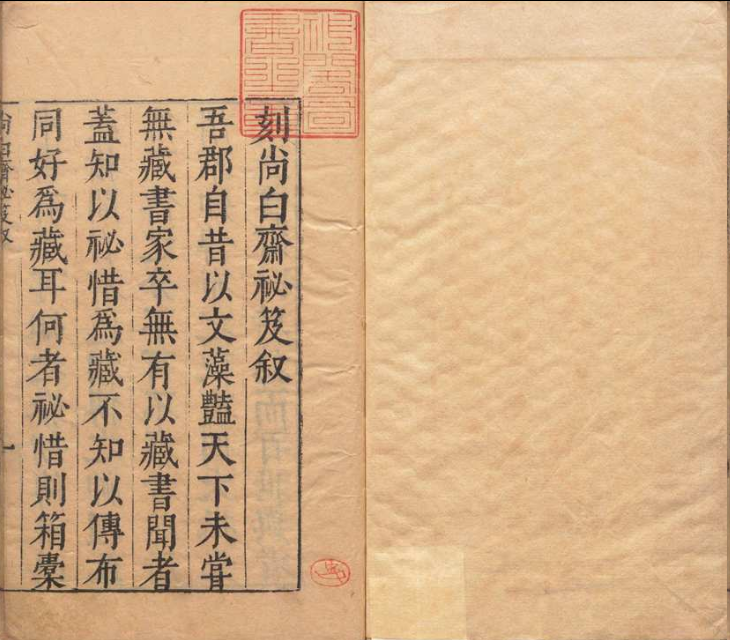 刻尚白齋祕笈叙
吾郡自昔以文藻豔天下未嘗
無藏書家卒無有以藏書聞者
蓋知以祕惜爲藏不知以傳布
同好爲藏耳何者祕惜則箱橐
尚白齋祕笈叙
一